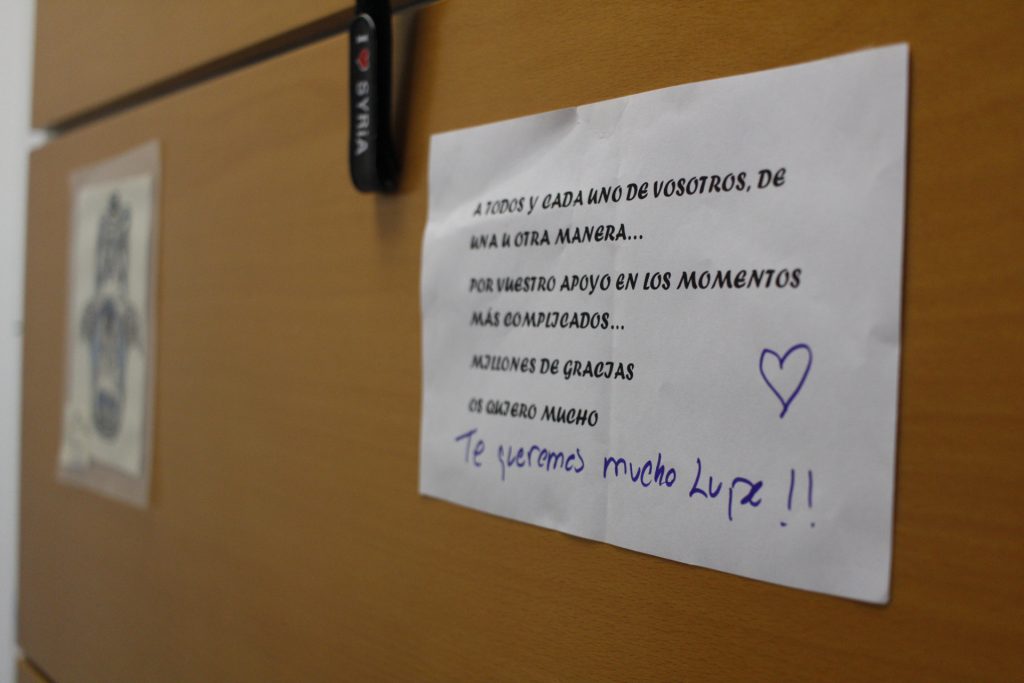 I ❤ SYRIA
A TODOS Y CADA UNO DE VOSOTROS, DE
UNA U OTRA MANERA...
POR VUESTRO APOYO EN LOS MOMENTOS
MÁS COMPLICADOS...
MILLONES DE GRACIAS
OS QUIERO MUCHO
Te queremos mucho Lupe !!